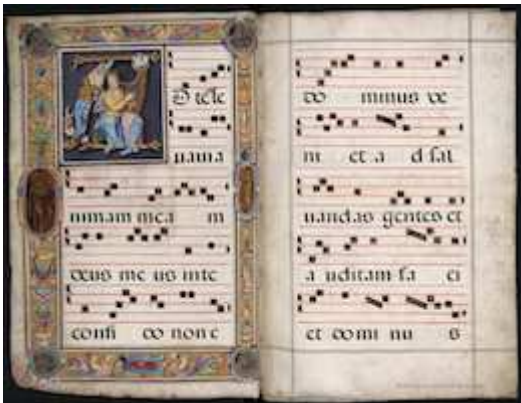 D te le
uaui a
nimam mea m
deus me us in te
confi do non e
do minus ve
ni et a d sal
uandas gentes et
a uditam fa ci
et domi nu s